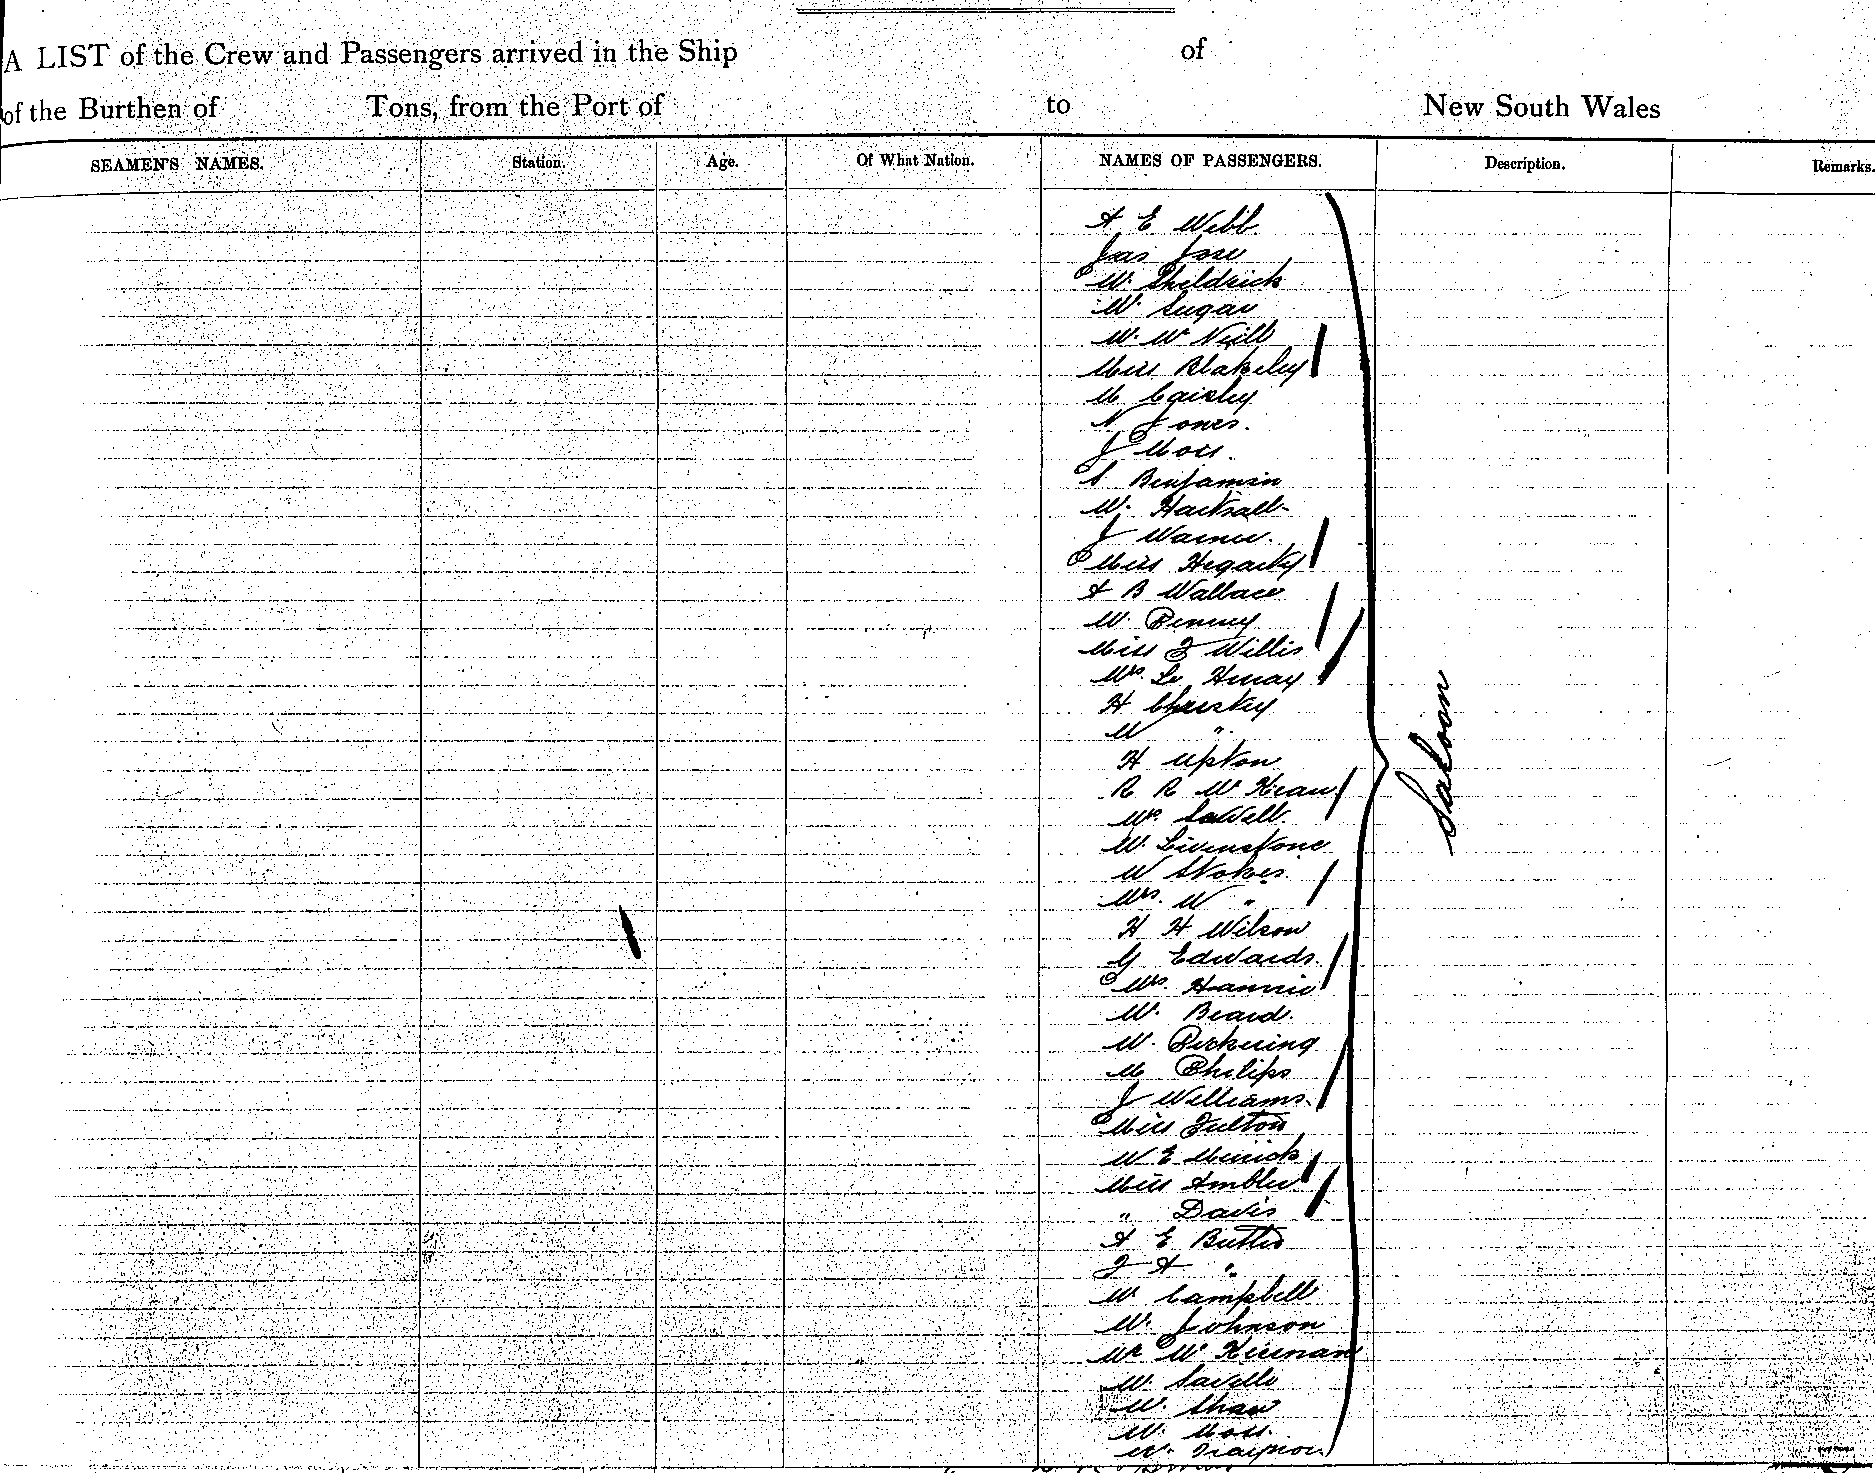 A LIST of the Crew and Passengers arrived in the Ship of
of the Burthen of Tons, from the Port of to New South Wales
SEAMEN'S NAMES. Station. Age. Of What Nation. NAMES OF PASSENGERS. Description. Remarks.
A E Webb
Jas Jose
W. Sheldrick
W Sugar
W. Mc Neill
Miss Blakeley
M Caisley
N Jones.
J Moss.
S Benjamin
W. Hartsall
J Warner.
Miss Hegarty
A B Wallace
W. Penny
Miss F Willis
Mrs. Le Hmay
H Christey
M "
H Upton
R R Mc Kean
Mrs. Sawell
W. Livenstone
W Stokes.
Mrs. W "
H H Wilson
G Edwards.
Mrs. Hannie
W. Beard.
W. Pickering
M Philips
J Williams.
Miss Fulton
W E Mirrick
Miss Ambler
" Davis
A E Butler
F A "
W Campbell
W. Johnson
Mr Mc Kiernan
W. Saville
W. Shaw
W. Moss.
W.
Saloon